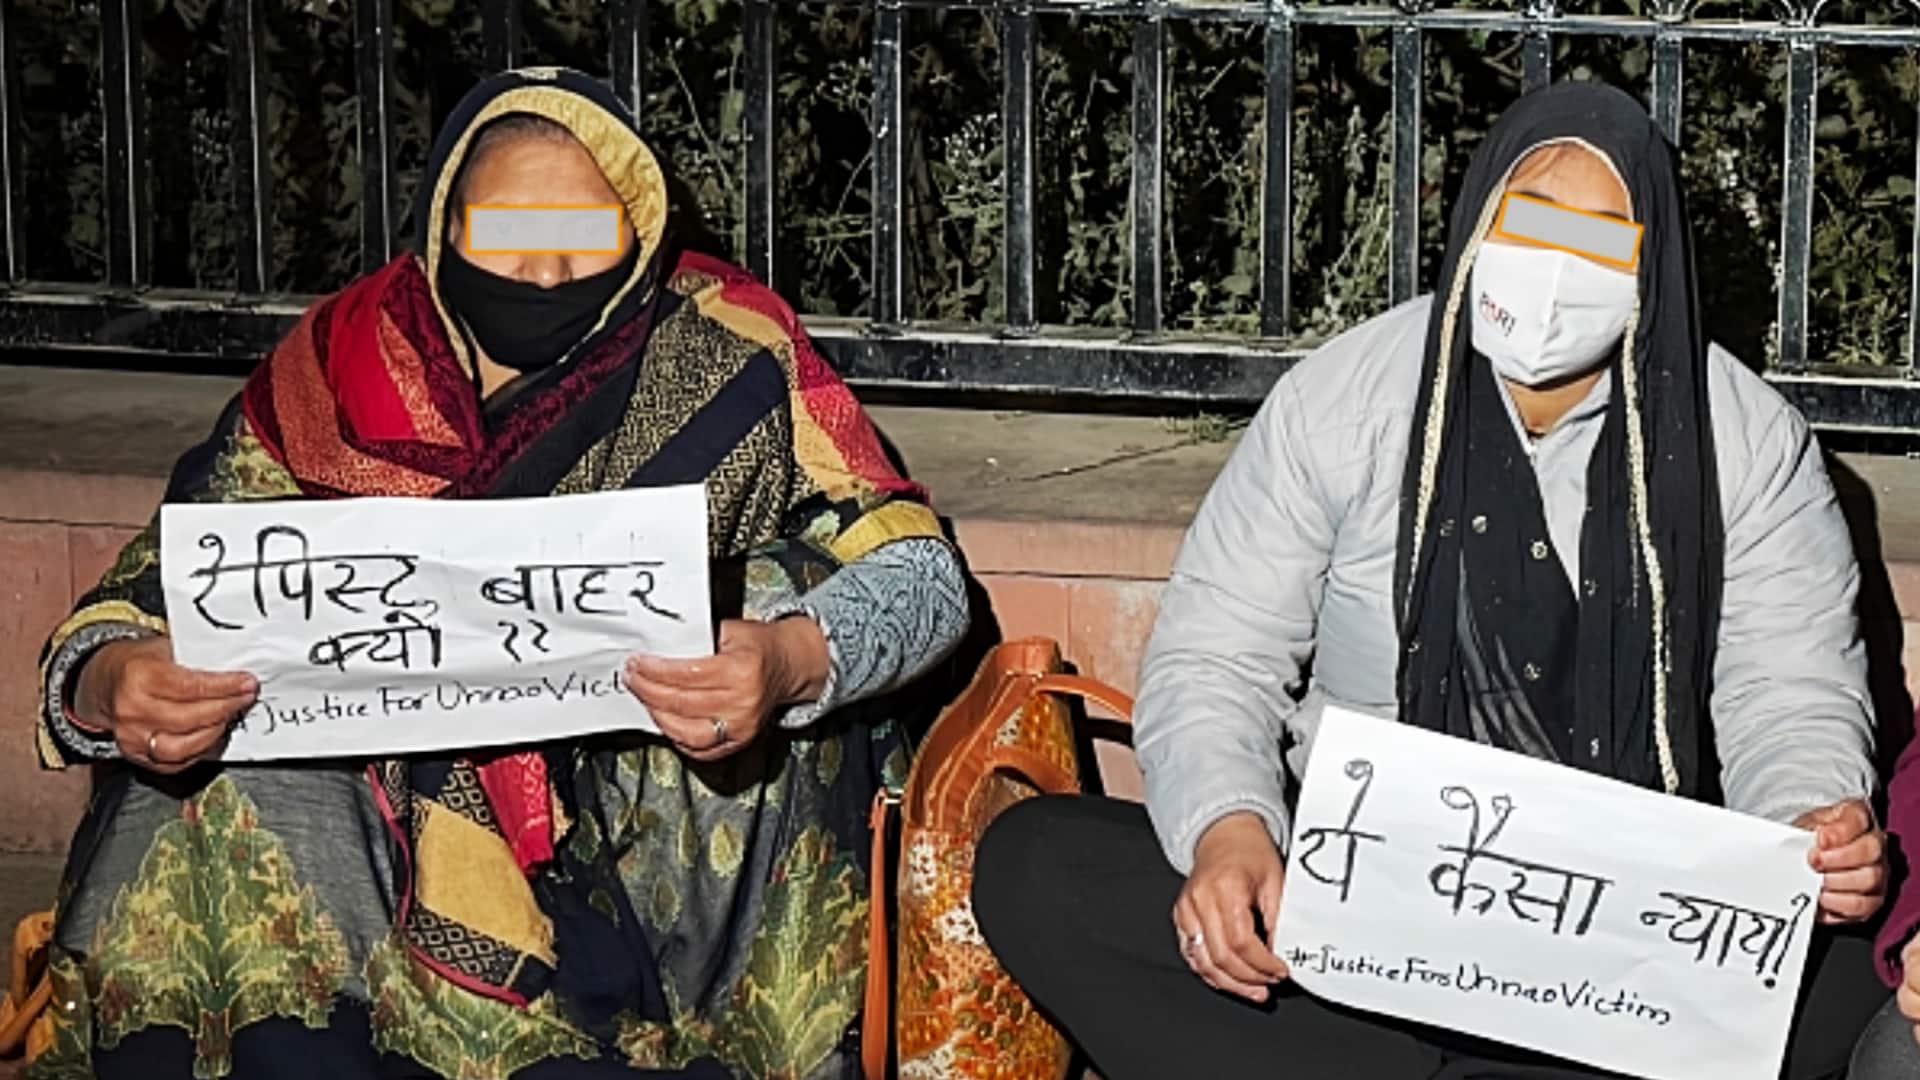 रेपिस्ट बाहर
क्यों ??
#JusticeForUnnaoVict
ये कैसा न्याय!
#JusticeForUnnaoVictim